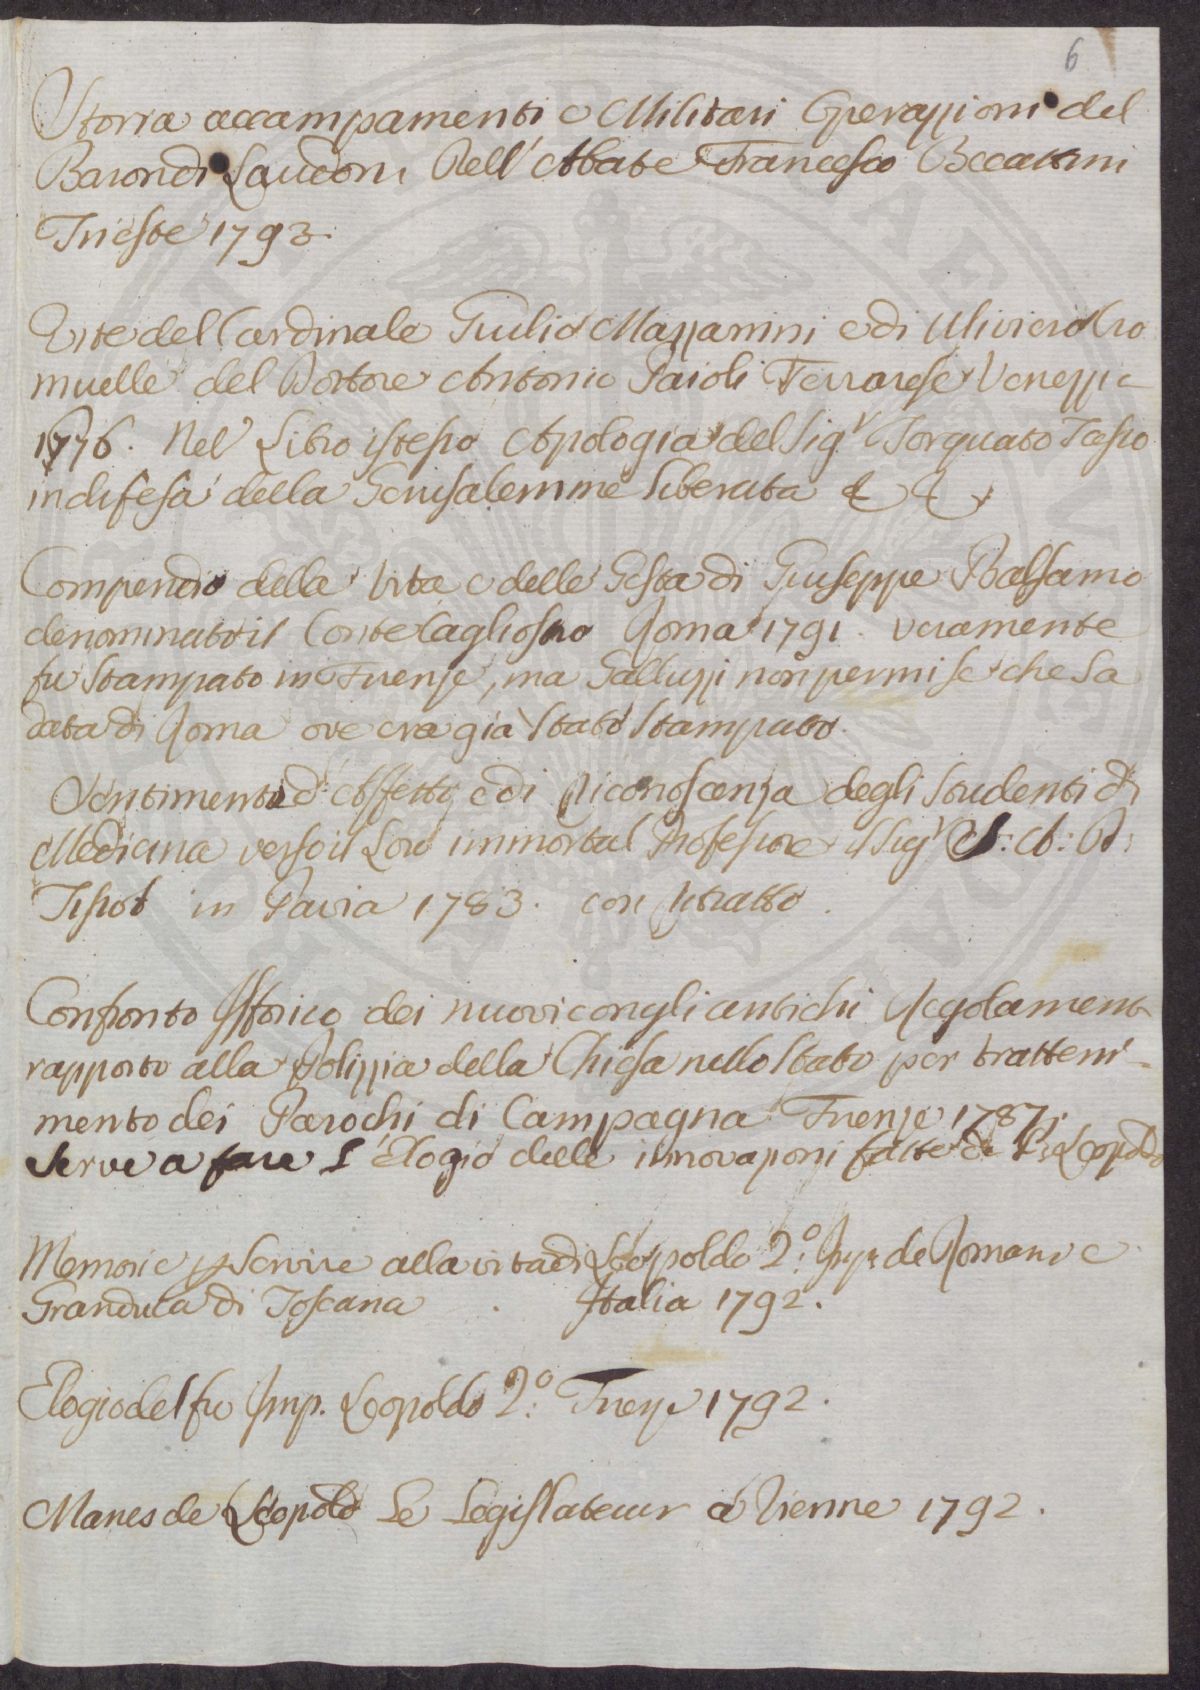 6
Storia accampamenti e Militari Operazzioni del
Baron di Laudon, Dell' Abate Francesco Beccattini
Trieste 1793.
Vite del Cardinale Giulio Mazzarini e di Uliviero Cro
muelle del Dottore Antonio Paioli Ferrarese Venezzia
1776. Nel Libro istesso Apologia del Sig.r Torquato Tasso
in difesa della Gerusalemme Liberata & & &
Compendio della Vita e delle Gesta di Giuseppe Balsamo
denominato il Conte Cagliostro Roma 1791. veramente
fu Stampato in Firenze, ma Galluzzi non permise che la
data di Roma ove era già stato Stampato.
Sentimento d' Affetto e di Riconoscenza degli Studenti di
Medicina verso il Loro immortal Professore il Sig.r S: A: D:
Tissot in Pavia 1783. con ritratto.
Confronto Istorico dei nuovi congli antichi Regolamenti
rapporto alla Polizzia della Chiesa nello Stato per tratteni-
mento dei Parochi di Campagna Firenze 1787.
Serve a fare L' Elogio delle innovazioni fatte da P. Leopoldo
Memorie p Servire alla vita di Leopoldo 2.o Imp.r de Romani e
Granduca di Toscana . Italia 1792.
Elogio del fu Imp. Leopoldo 2.o Firenze 1792.
Manes de Leopold Le Legislateur a Vienne 1792.